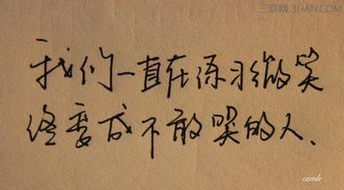 三联网 3LIAN.COM
我们一直在练习微笑
终要成不敢哭的人、
camle